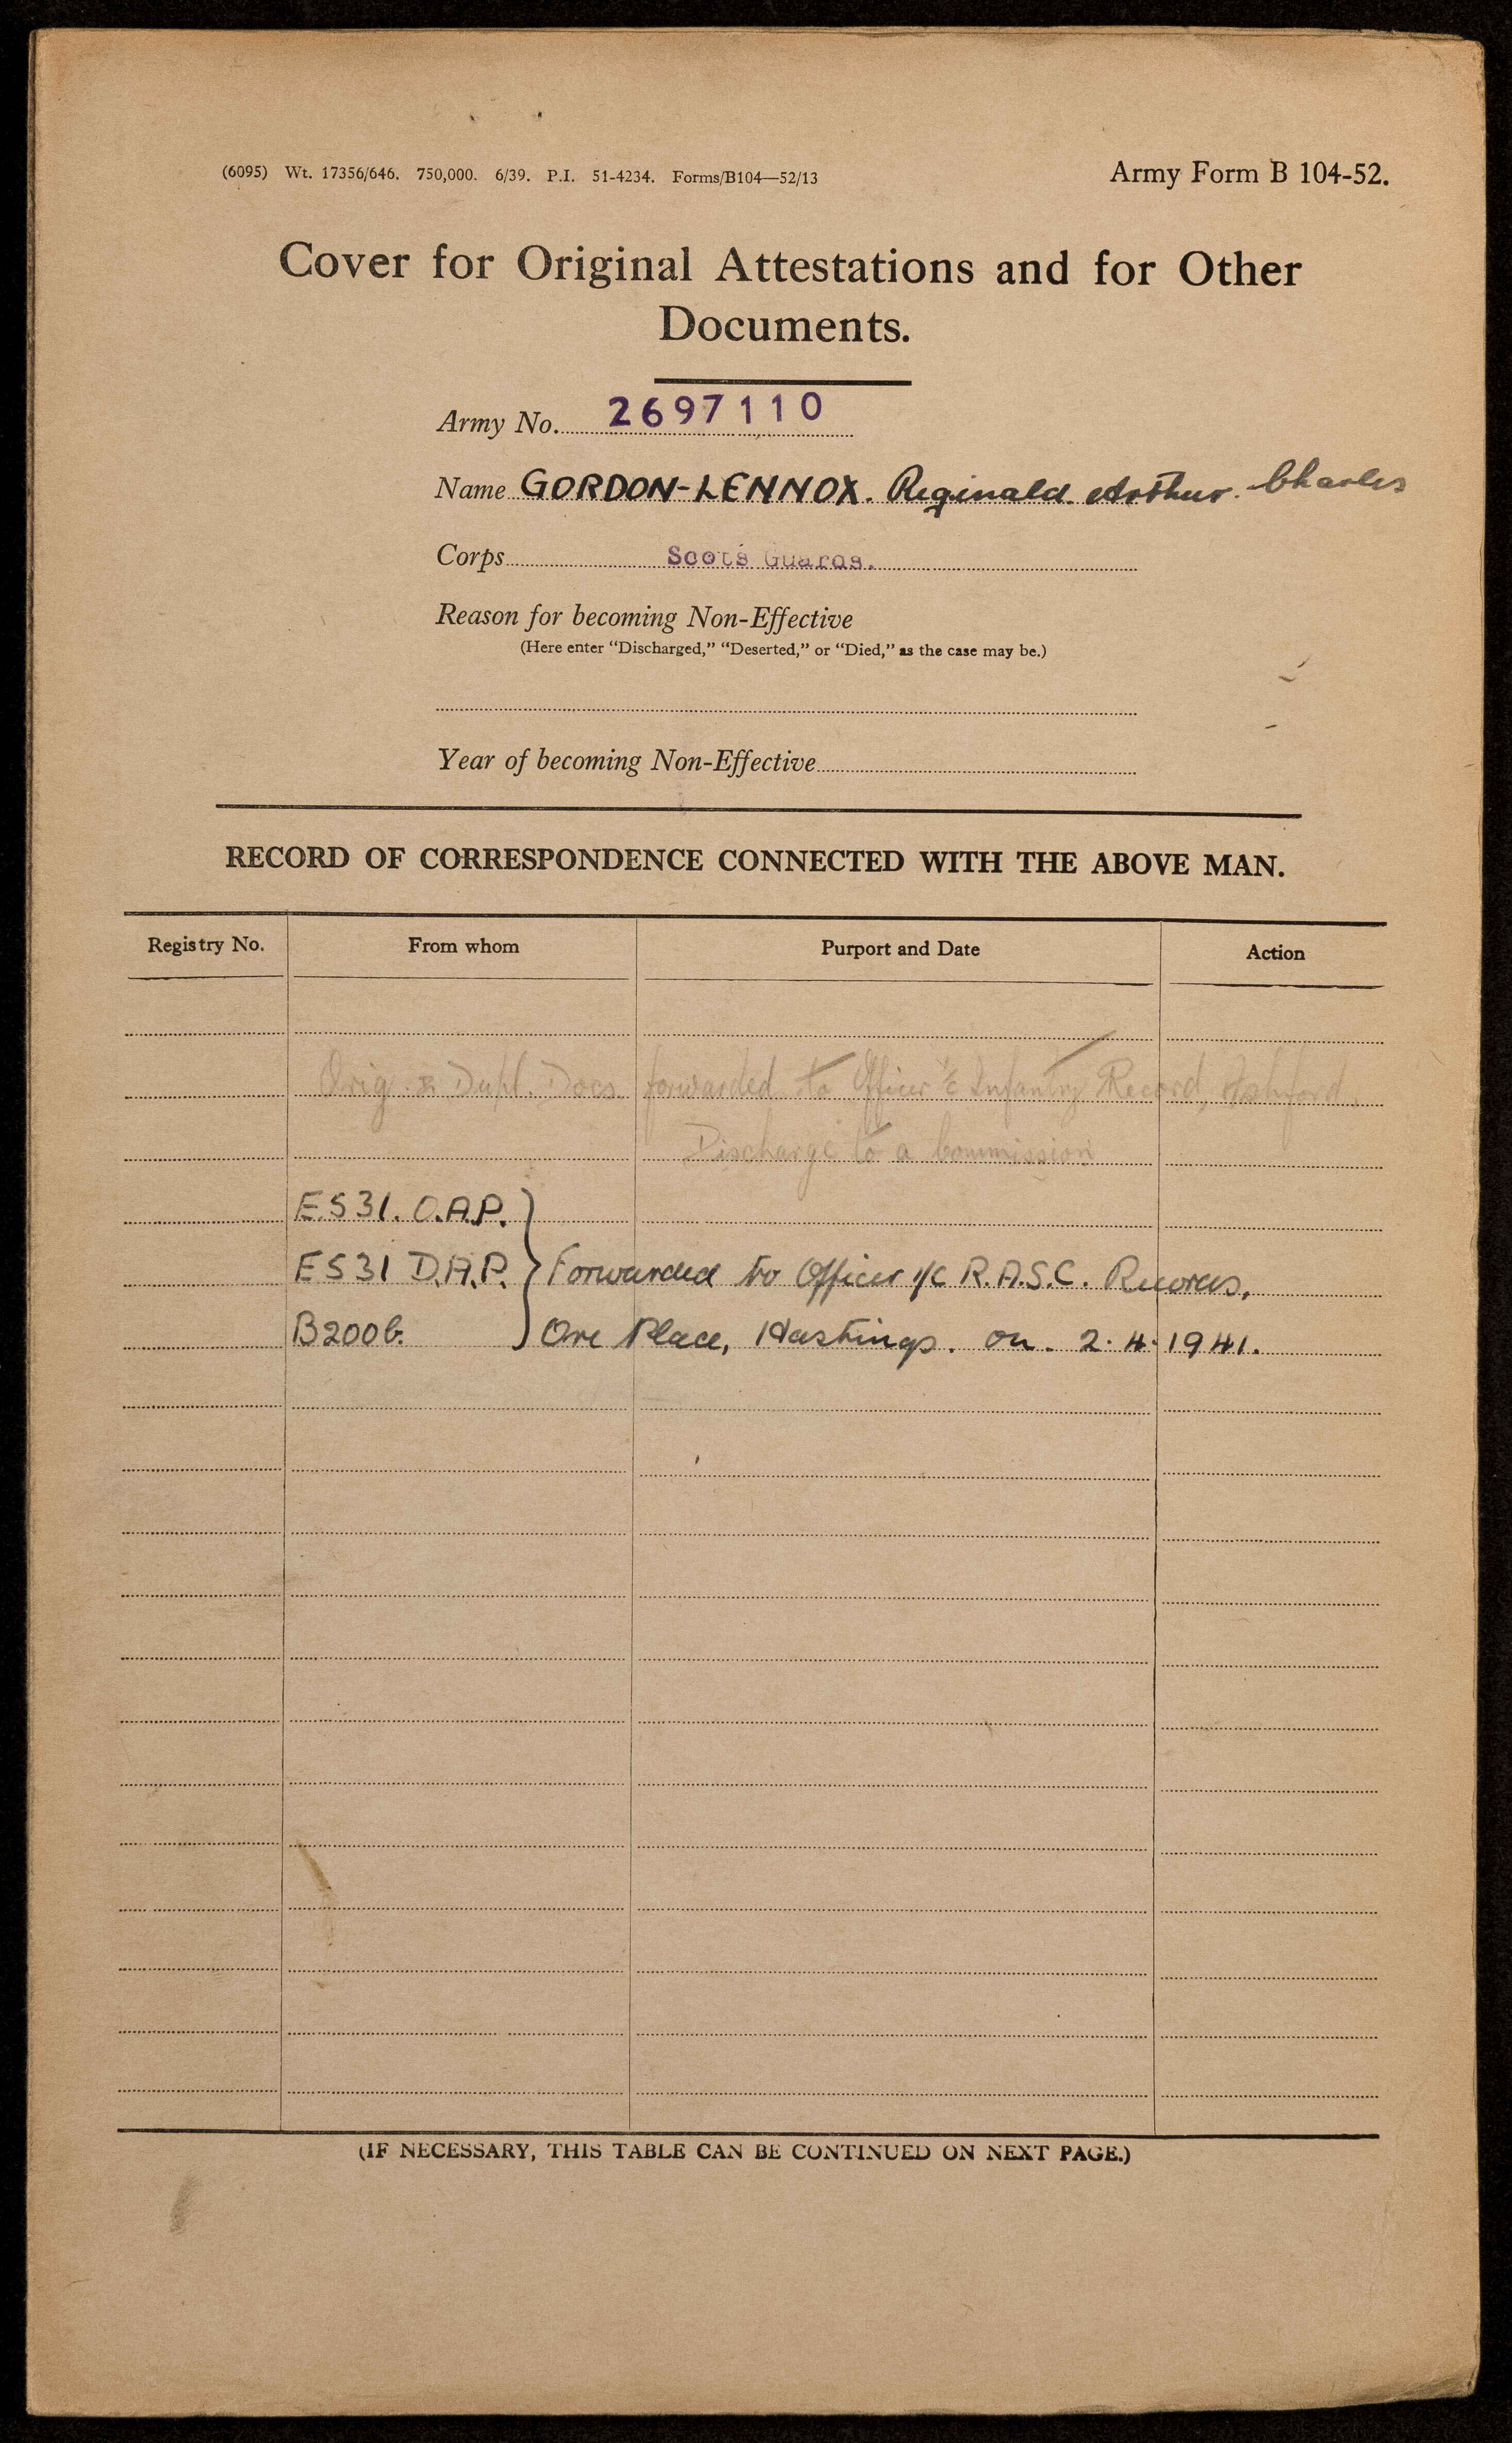 (6095) Wt. 17356/646. 750,000. 6/39. P.I. 51-4234. Forms/B104—52/13
Army Form B 104-52.
Cover for Original Attestations and for Other
Documents.
Army No. 2697110
Name GORDON-LENNOX. Reginald Arthur. Charles
Corps Scots Guards.
Reason for becoming Non-Effective
(Here enter "Discharged," "Deserted," or "Died," as the case may be.)
Year of becoming Non-Effective
RECORD OF CORRESPONDENCE CONNECTED WITH THE ABOVE MAN.
Registry No. From whom Purport and Date Action
Orig. & Dupl. Docs. forwarded to Officer i/c Infantry Record, Ashford.
Discharge to a Commission
E.S31. O.A.P.
ES31 D.A.P. Forwarded to Officer i/c R.A.S.C. Records,
B200b. Ore Place, Hastings. on. 2.4.1941.
(IF NECESSARY, THIS TABLE CAN BE CONTINUED ON NEXT PAGE.)